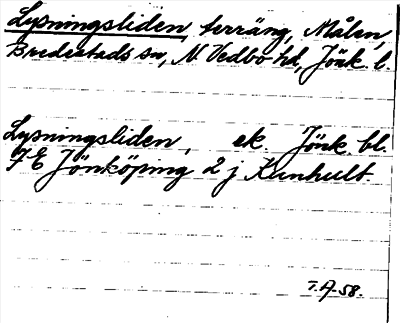 Lysningsliden, terräng, Målen,
Bredestads sn, N Vedbo hd, Jönk. l.
Lysningsliden, ek. Jönk bl.
7E Jönköping 2 j Kunhult
T.A. 58.